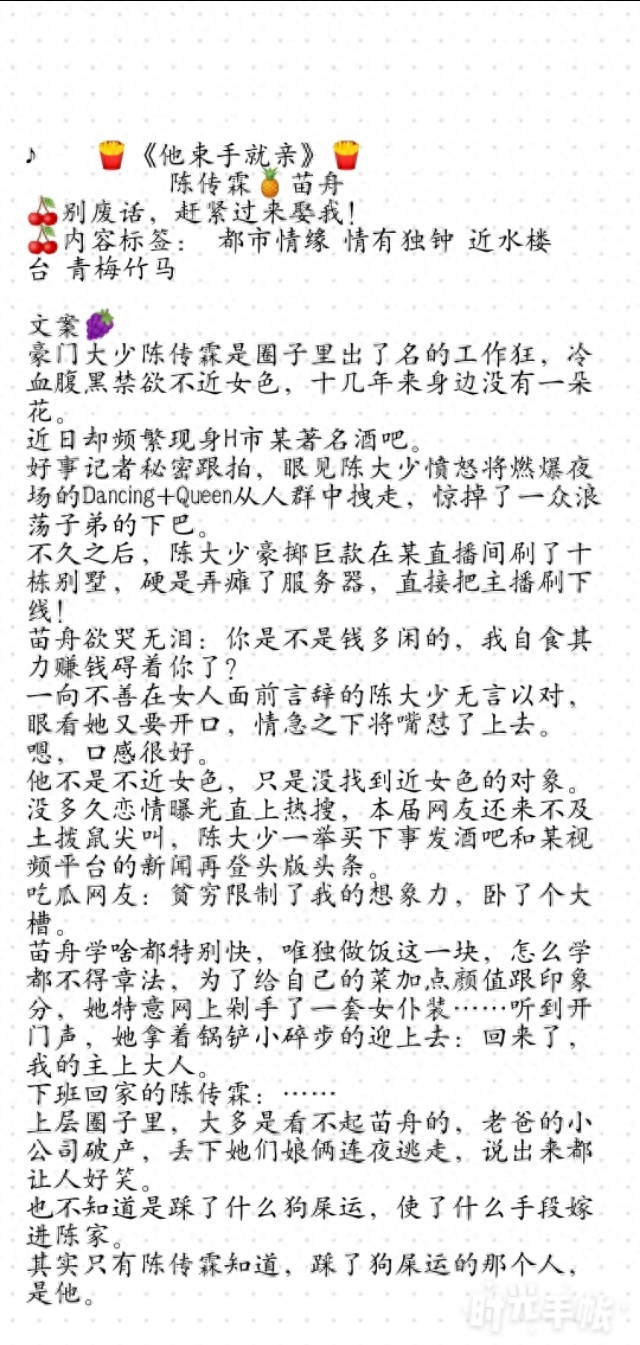 ♪ 🍟《他束手就亲》🍟
陈传霖🍍苗舟
🍒别废话，赶紧过来娶我！
🍒内容标签： 都市情缘 情有独钟 近水楼
台 青梅竹马
文案🍇
豪门大少陈传霖是圈子里出了名的工作狂，冷
血腹黑禁欲不近女色，十几年来身边没有一朵
花。
近日却频繁现身H市某著名酒吧。
好事记者秘密跟拍，眼见陈大少愤怒将燃爆夜
场的Dancing+Queen从人群中拽走，惊掉了一众浪
荡子弟的下巴。
不久之后，陈大少豪掷巨款在某直播间刷了十
栋别墅，硬是弄瘫了服务器，直接把主播刷下
线！
苗舟欲哭无泪：你是不是钱多闲的，我自食其
力赚钱碍着你了？
一向不善在女人面前言辞的陈大少无言以对，
眼看她又要开口，情急之下将嘴怼了上去。
嗯，口感很好。
他不是不近女色，只是没找到近女色的对象。
没多久恋情曝光直上热搜，本届网友还来不及
土拨鼠尖叫，陈大少一举买下事发酒吧和某视
频平台的新闻再登头版头条。
吃瓜网友：贫穷限制了我的想象力，卧了个大
槽。
苗舟学啥都特别快，唯独做饭这一块，怎么学
都不得章法，为了给自己的菜加点颜值跟印象
分，她特意网上剁手了一套女仆装……听到开
门声，她拿着锅铲小碎步的迎上去：回来了，
我的主上大人。
下班回家的陈传霖：……
上层圈子里，大多是看不起苗舟的，老爸的小
公司破产，丢下她们娘俩连夜逃走，说出来都
让人好笑。
也不知道是踩了什么狗屎运，使了什么手段嫁
进陈家。
其实只有陈传霖知道，踩了狗屎运的那个人，
是他。
时光手帐